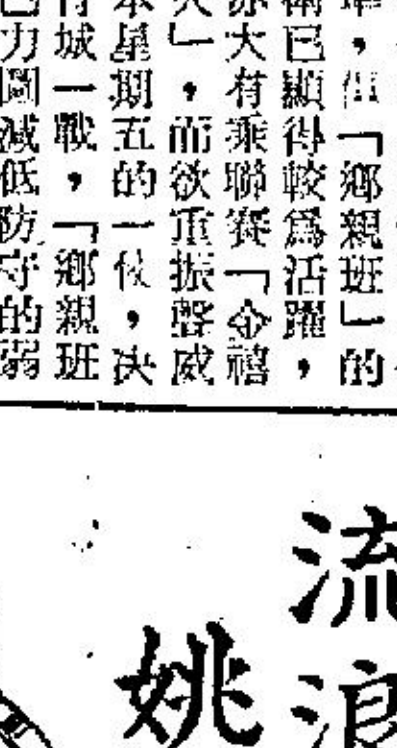 單，但「鄉親班」的
衛已顯得較爲活躍，
亦大有乘聯賽「令禧
火」，而欲重振聲威
本星期五的一仗，决
有城一戰，「鄉親班
已力圖減低防守的弱
流浪
姚